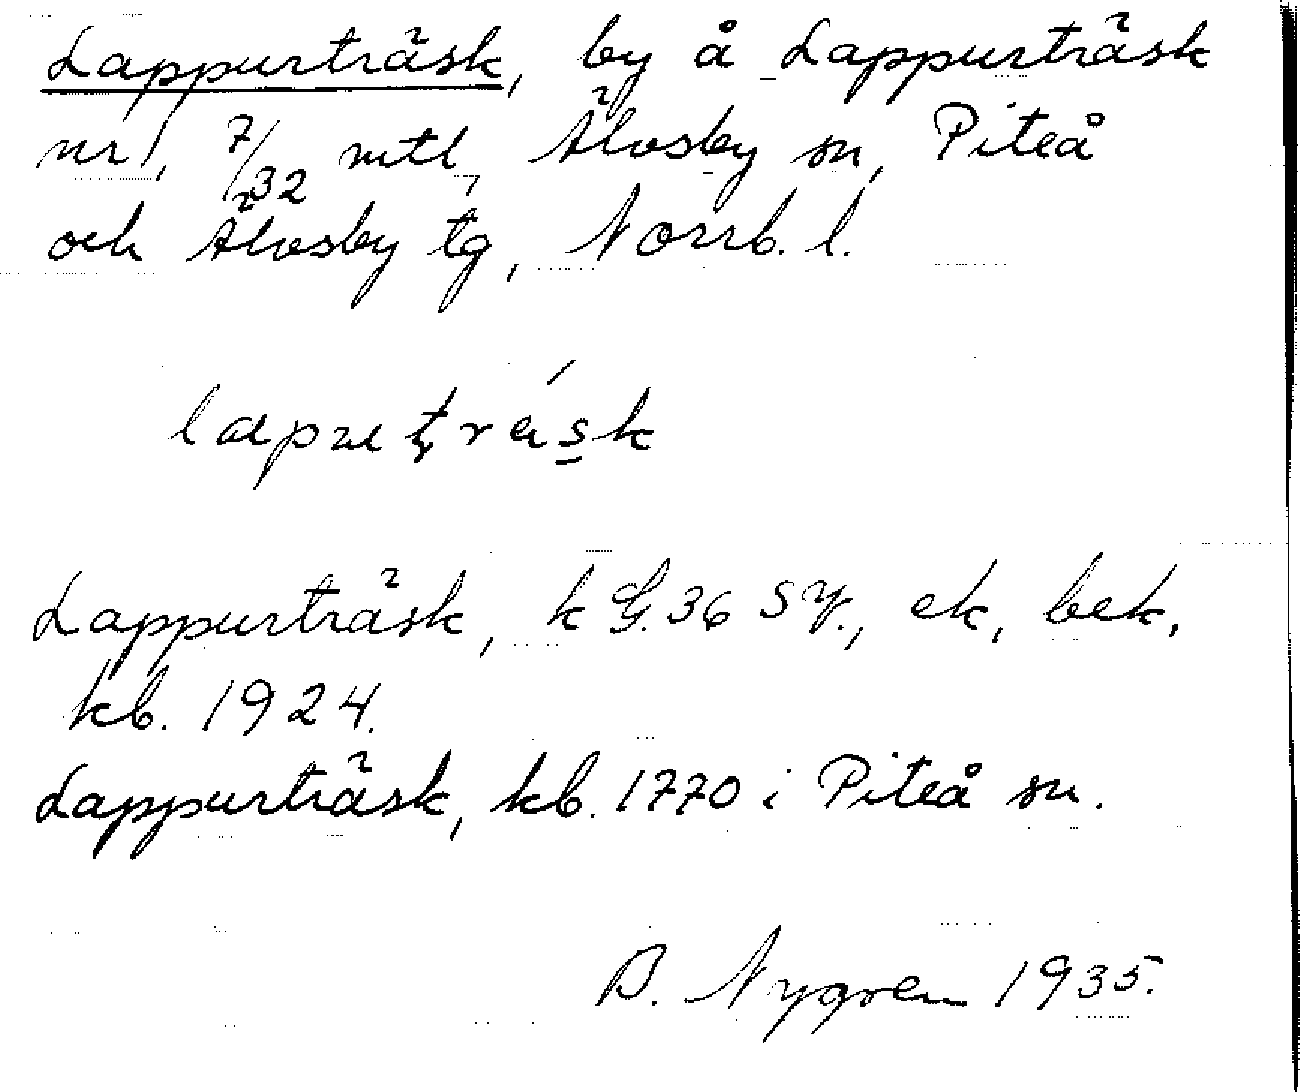 Lappurträsk, by å Lappurträsk
nr 1, 7/32 mtl, Älvsby sn, Piteå
och Älvsby tg, Norrb. l.
Lappurträsk, k G. 36 SV., ek, bek.
kb. 1924.
Lappurträsk, kb. 1770 i Piteå sn.
B. Nygren 1935.